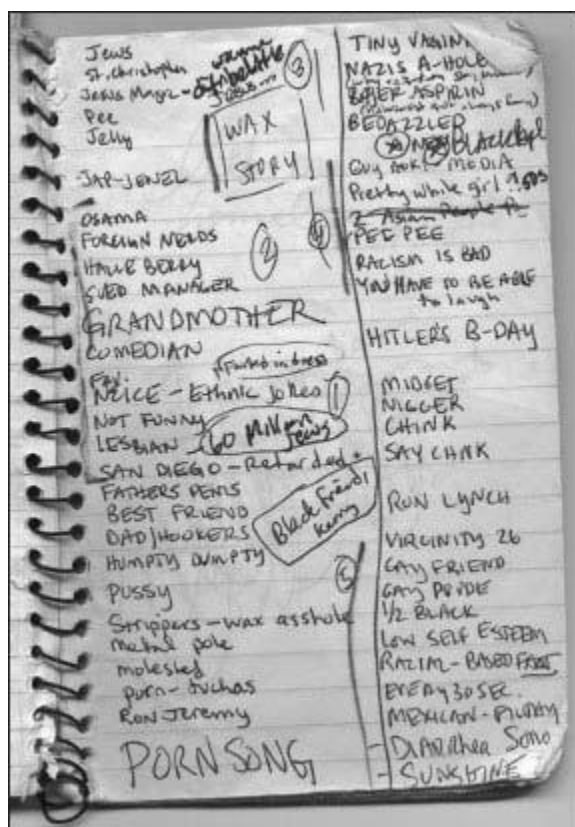 Jews
St. Christopher
Jesus Magic -
Pee
Jelly
3
WAX
STORY
JAP-JEWEL
OSAMA
FOREIGN NERDS
HALLE BERRY
SUED MANAGER
GRANDMOTHER
COMEDIAN
2
4
NEICE - Ethnic Jokes
1
NOT FUNNY
LESBIAN
60 Million
Jews
SAN DIEGO - Retarded
FATHERS PENIS
BEST FRIEND
DAD/HOOKERS
HUMPTY DUMPTY
Black Friend,
Kerry
5
PUSSY
Strippers - wax asshole
metal pole
molested
porn - tuchas
Ron Jeremy
PORN SONG
TINY VAGINA
NAZIS A-HOLE
BAYER ASPIRIN
BEDAZZLER
NEW BLACK
GUY MEDIA
Pretty white girl
2 Asian People
PEE PEE
RACISM IS BAD
YOU HAVE TO BE ABLE
to laugh
HITLER'S B-DAY
MIDGET
NIGGER
CHINK
SAY CHINK
RUN LYNCH
VIRGINITY 26
GAY FRIEND
GAY PRIDE
1/2 BLACK
LOW SELF ESTEEM
RACIAL - BASED FACT
EVERY 30 SEC.
MEXICAN - FILTHY
- DiARRhea Song
- SUNSHINE